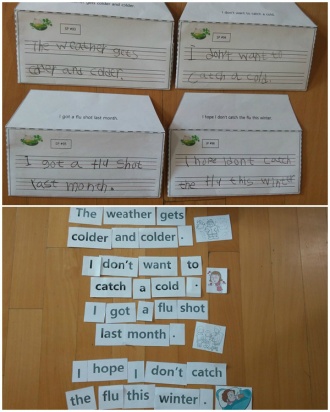 colder and colder.
I don't want to catch a cold.
The weather gets
colder and colder.
I don't want to
catch a cold.
I got a flu shot last month.
I hope I don't catch the flu this winter.
I got a flu shot
last month.
I hope I don't catch
the flu this winter
The weather gets
colder and colder.
I don't want to
catch a cold.
I got a flu shot
last month.
I hope I don't catch
the flu this winter.